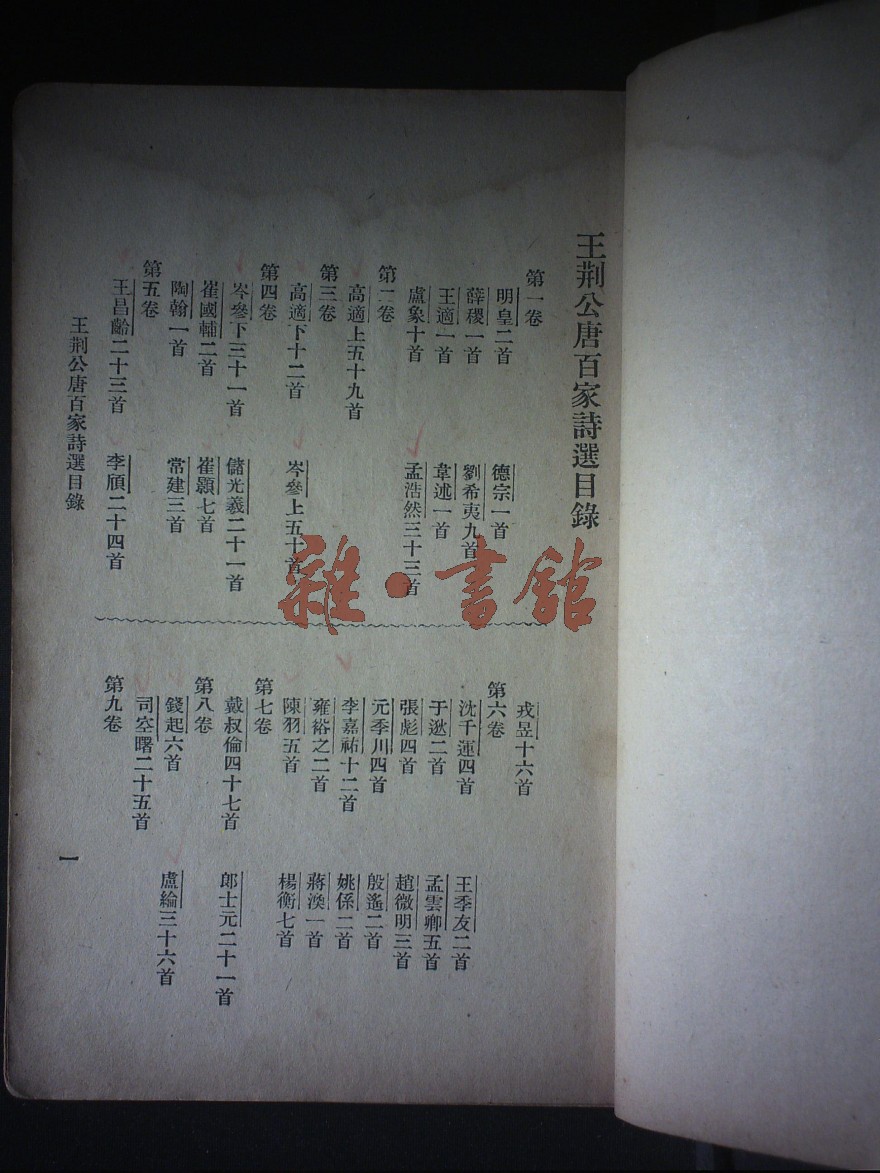 王荆公唐百家詩選目錄
第一卷
明皇二首
德宗一首
薛稷一首
劉希夷九首
王適一首
韋述一首
盧象十首
孟浩然三十三首
第二卷
高適上五十九首
第三卷
高適下十二首
岑參上五十首
第四卷
岑參下三十一首
儲光羲二十一首
崔國輔二首
崔顥七首
陶翰一首
常建三首
第五卷
王昌齡二十三首
李頎二十四首
戎昱十六首
第六卷
沈千運四首
王季友二首
于逖二首
孟雲卿五首
張彪四首
趙微明三首
元季川四首
殷遙二首
李嘉祐十二首
姚係二首
雍裕之二首
蔣渙一首
陳羽五首
楊衡七首
第七卷
戴叔倫四十七首
郎士元二十一首
第八卷
錢起六首
盧綸三十六首
司空曙二十五首
第九卷
王荆公唐百家詩選目錄
一
雜·書館